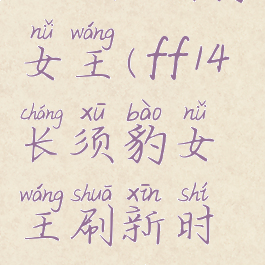 nǚ wáng
女王(ff14
cháng xū bào nǚ
长须豹女
wáng shuā xīn shí
王刷新时